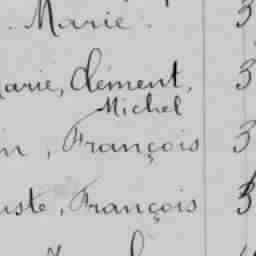 . Marie . 3
arie, Clément, 3
Michel
in, François 3
uste, François 3